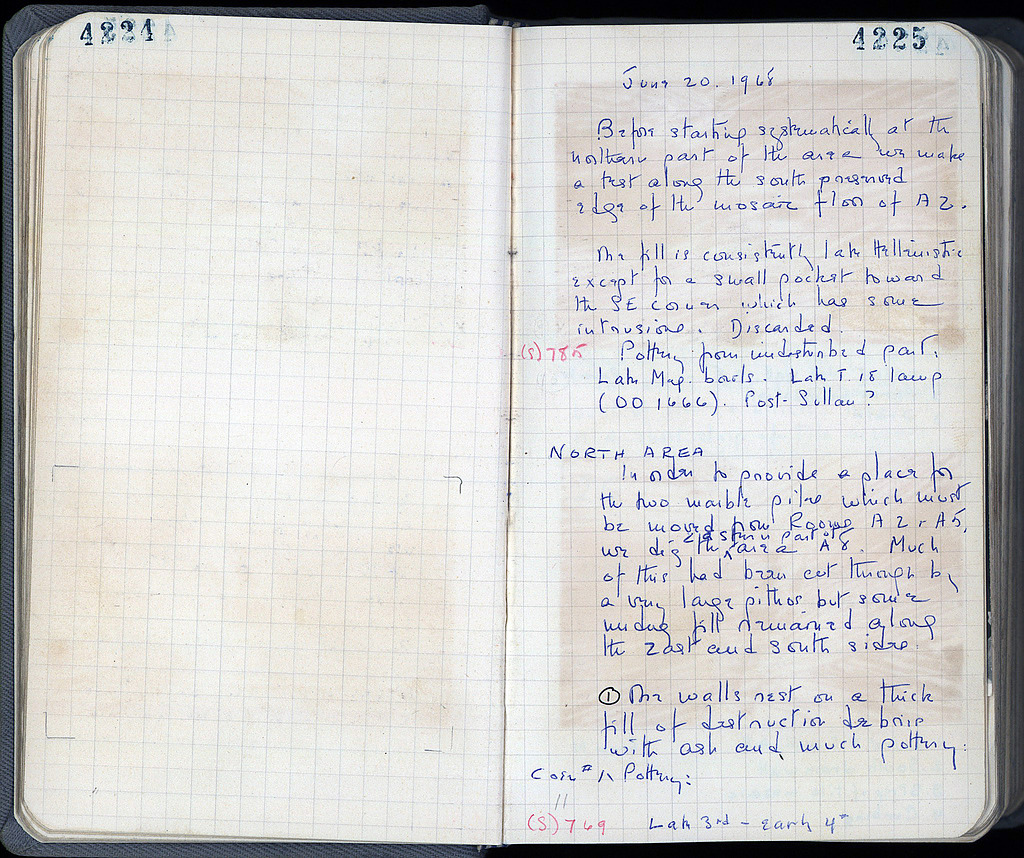 4224
4225
June 20. 1968
Before starting systematically at the
northern part of the area we make
a test along the south preserved
edge of the mosaic floor of A 2.
The fill is consistently late Hellenistic
except for a small pocket toward
the SE corner which has some
intrusions. Discarded.
(S) 785 Pottery from undisturbed part:
Late Meg. bowls. Late T. 18 lamp
(OO 1666). Post-Sullan?
NORTH AREA
In order to provide a place for
the two marble piles which must
be moved from Rooms A 2, A 5,
eastern part of
we dig the area A 8. Much
of this had been cut through by
a very large pithos but some
undug fill remained along
the east and south sides.
① The walls rest on a thick
fill of destruction debris
with ash and much pottery:
Coin # 1 Pottery:
11
(S) 769 Late 3rd - early 4th